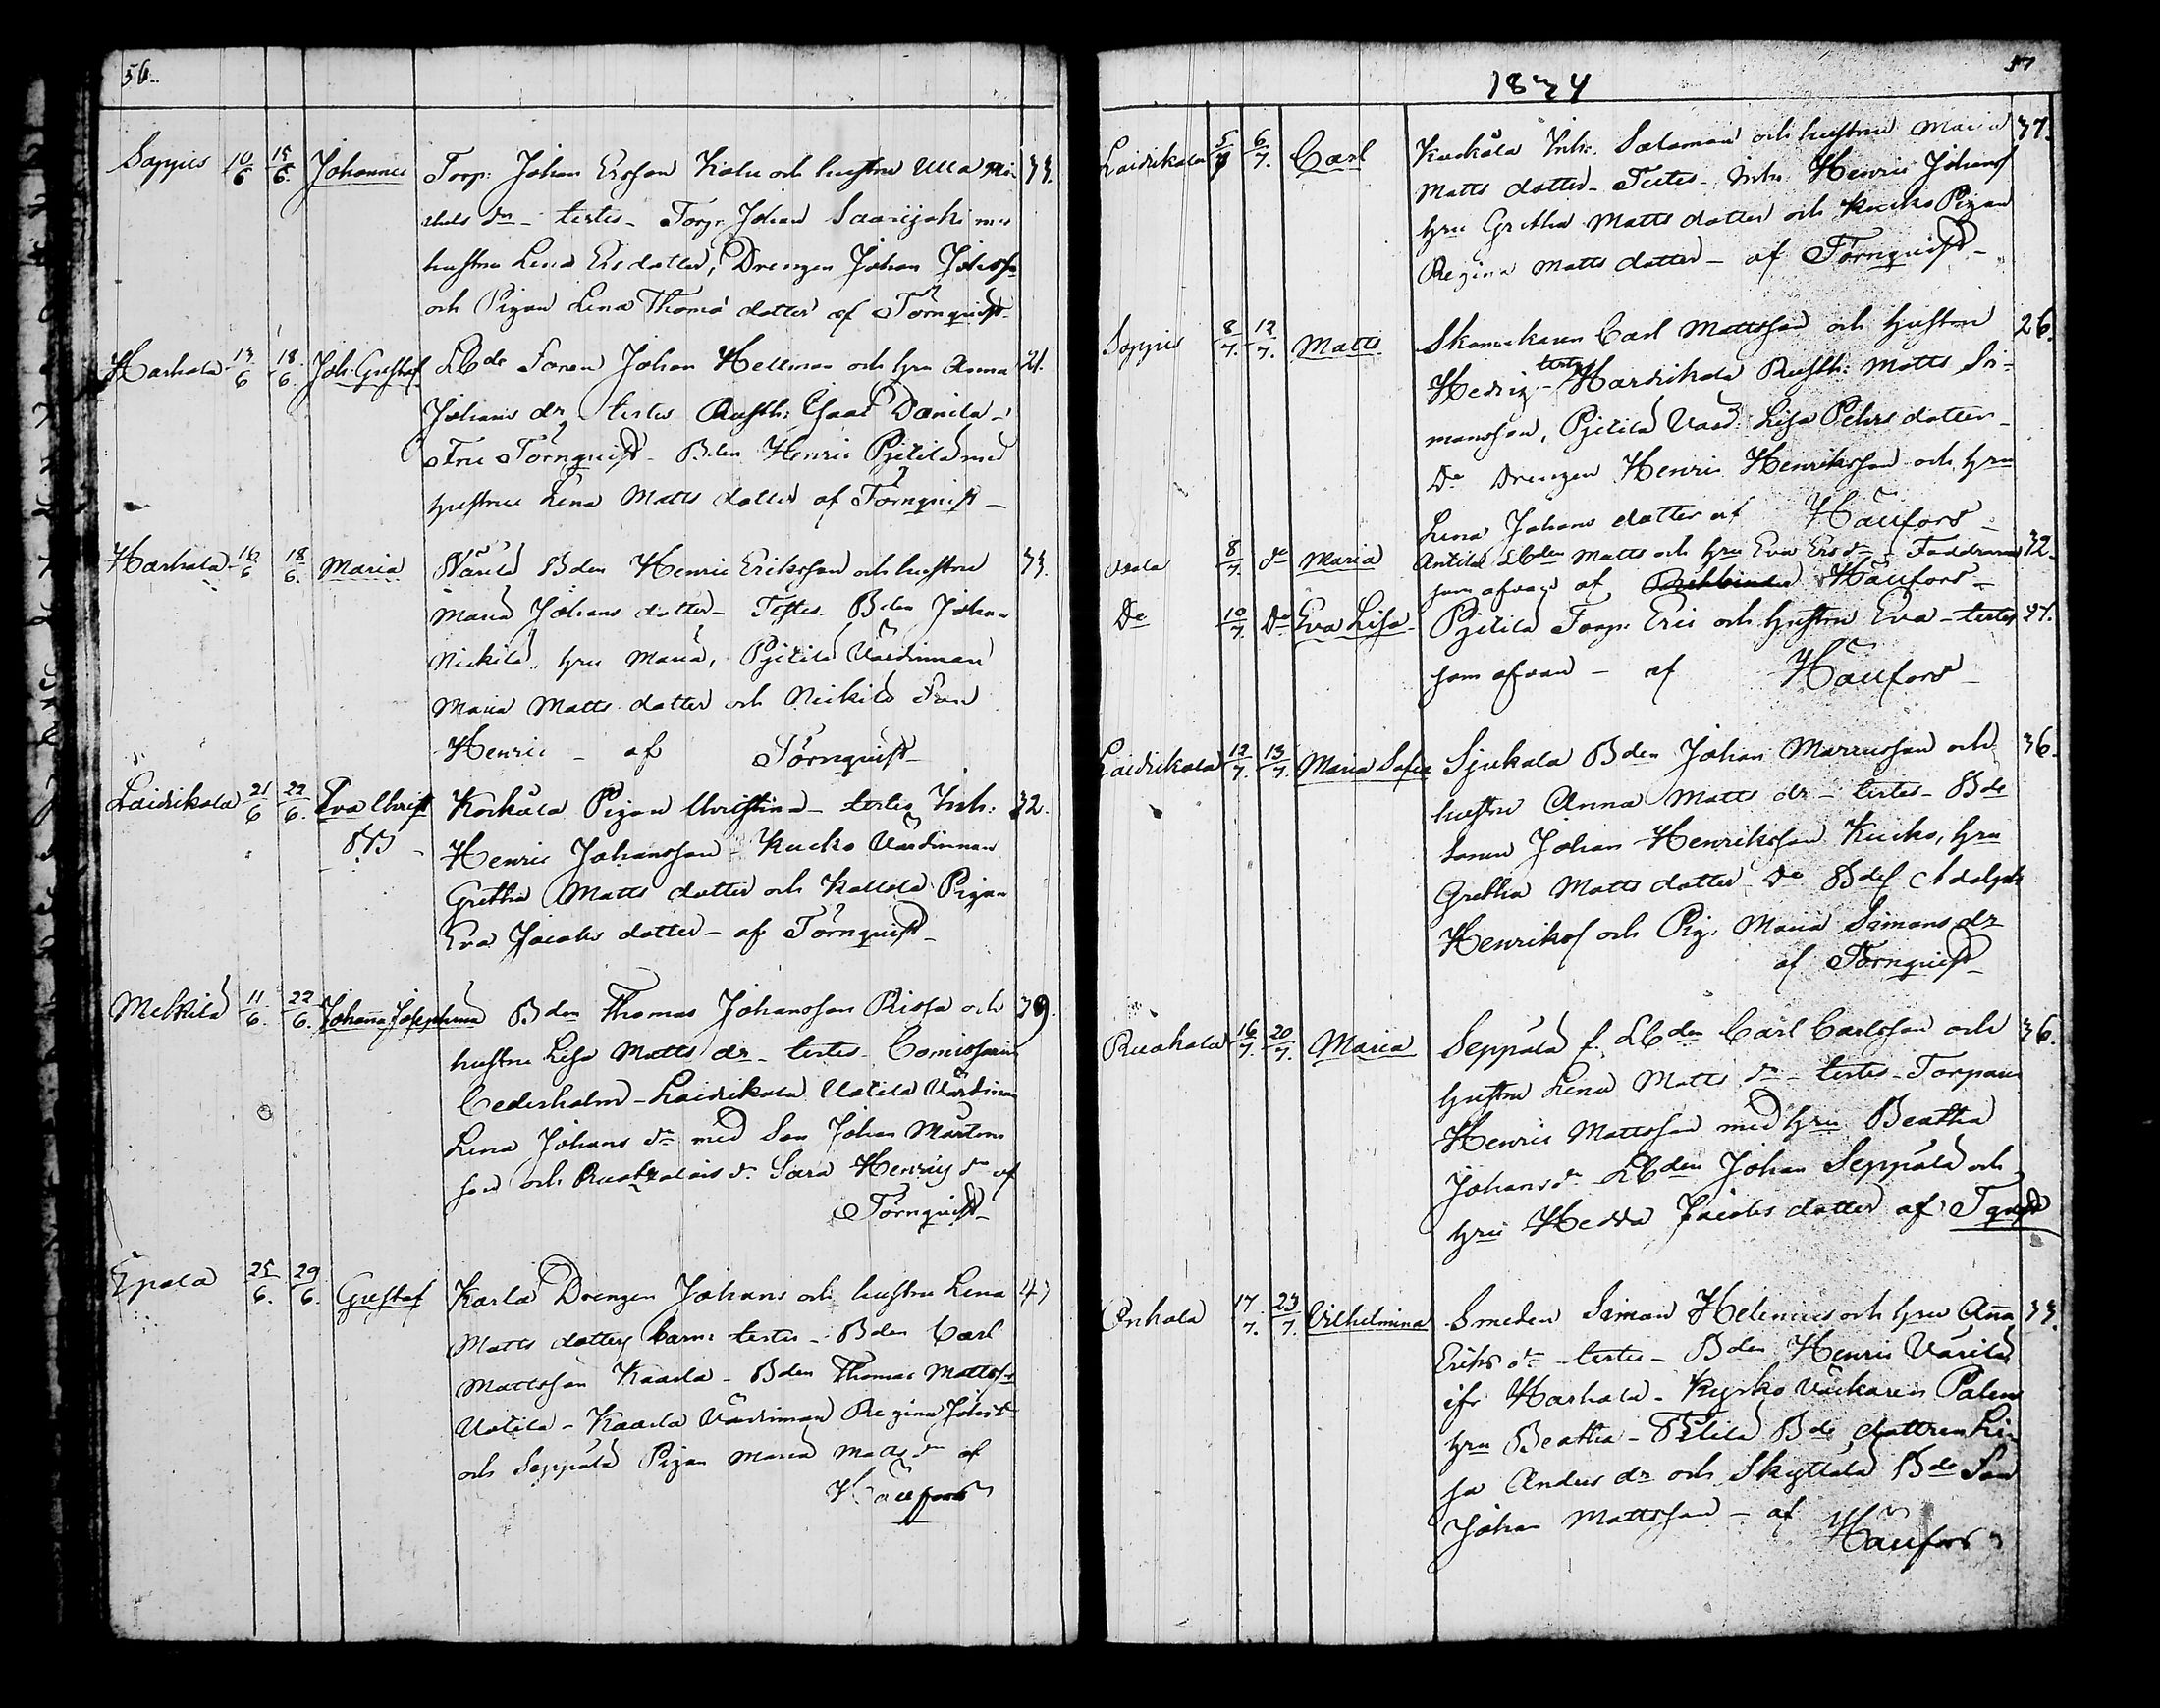 56.
Sappis 10/6 15/6. Johannes Torp: Johan Ersson Kalu och hustru Ulla Mi- 33.
chels dr - testes - Torp: Johan Saarijoki med
hustru Lena Ers dotter, Drengen Johan Johansson
och Pigan Lena Thoma dotter af Törnquist -
Harhala 13/6 18/6. Joh. Gustaf LBde Sonen Johan Hellman och hru Anna 21.
Johans dr testes Rusth: Isaac Danila -
Fru Törnquist - Bden Henric Pjetilä med
hustru Lena Matts dotter af Törnquist -
Harhala 16/6 18/6. Maria Wärilä Bden Henric Eriksson och hustru 33.
Maria Johans dotter - Testes Bden Johan
Nickilä hru Maria, Pjetilä Värdinnan
Maria Matts dotter och Nickilä Son
Henric - af Törnquist -
Laidikala 21/6 22/6. Eva Christ Korkula Pigan Christina - testes Inh: 32.
Henric Johansson - Kucko Värdinnan
Gretha Matts dotter och Kallola Pigan
Eva Jacobs dotter - af Törnquist -
Melkilä 11/6. 22/6. Johanna Josephina Bden Thomas Johansson Rissa och 39.
hustru Lisa Matts dr - testes - Comissarien
Cederholm - Laidikala Uotila Värdinnan
Lena Johans dr med Son Johan Mårtens
son och dr Sara Henrics dr af
Törnquist -
Epala 25/6. 29/6. Gustaf Karla Drengen Johans och hustru Lena 43
Matts dotters barn: testes - Bden Carl
Mattsson Kaarla - Bden Thomas Mattss:
Uotila - Kaarla Värdinnan Regina Johs dr
och Seppälä Pigan Maria Matts dr af
Häufors
1834 57
Laidikala 5/7 6/7. Carl Kuckola Inh: Salomon och hustru Maria 37.
Matts dotter - Testes - Inh: Henric Johanss
hru Gretha Matts dotter och Kucko Pigan
Regina Matts dotter - af Törnquist -
Sappis 8/7. 12/7. Matts Skomakaren Carl Mattsson och hustru 26.
Hedvig - testes Hardikala Rusth: Matts Si-
monsson, Pjetilä Värd: Lisa Pehrs dotter -
Do Drengen Henric Henriksson och hru
Lena Johans dotter af Häufors -
8/7. do Maria Anttila LBden Matts och hru Eva Ers dr - Faddrarne 32.
som ofvan af Häufors -
Do 10/7. Do Eva Lisa Pjetilä Torp: Eric och hustru Eva - testes 27.
som ofvan - af Häufors -
Laidikala 12/7. 13/7. Maria Sofia Sjukala Bden Johan Marcusson och 36.
hustru Anna Matts dr - testes - Bde
sonen Johan Henriksson Kucko, hru
Gretha Matts dotter - Do Bdes Adolph
Henrikss och Pig: Maria Simons dr
af Törnquist -
Ruokala 16/7. 20/7. Maria Seppälä f. LBden Carl Carlsson och 36.
hustru Lena Matts dr - testes - Torparen
Henric Mattsson med hru Beatha
Johans dr LBden Johan Seppälä och
hru Hedda Jacobs dotter af Tqvist
Onkala 17/7. 23/7. Vilhelmina Smeden Siman Helenius och hru Anna 33.
Eriks dr - testes - Bden Henric Värilä
ifr Harhala - Kyrko väktaren Palen
hru Beatha - Pjetilä Bde dottren Li-
sa Anders dr och Skyttälä Bde Son
Johan Mattsson - af Häufors